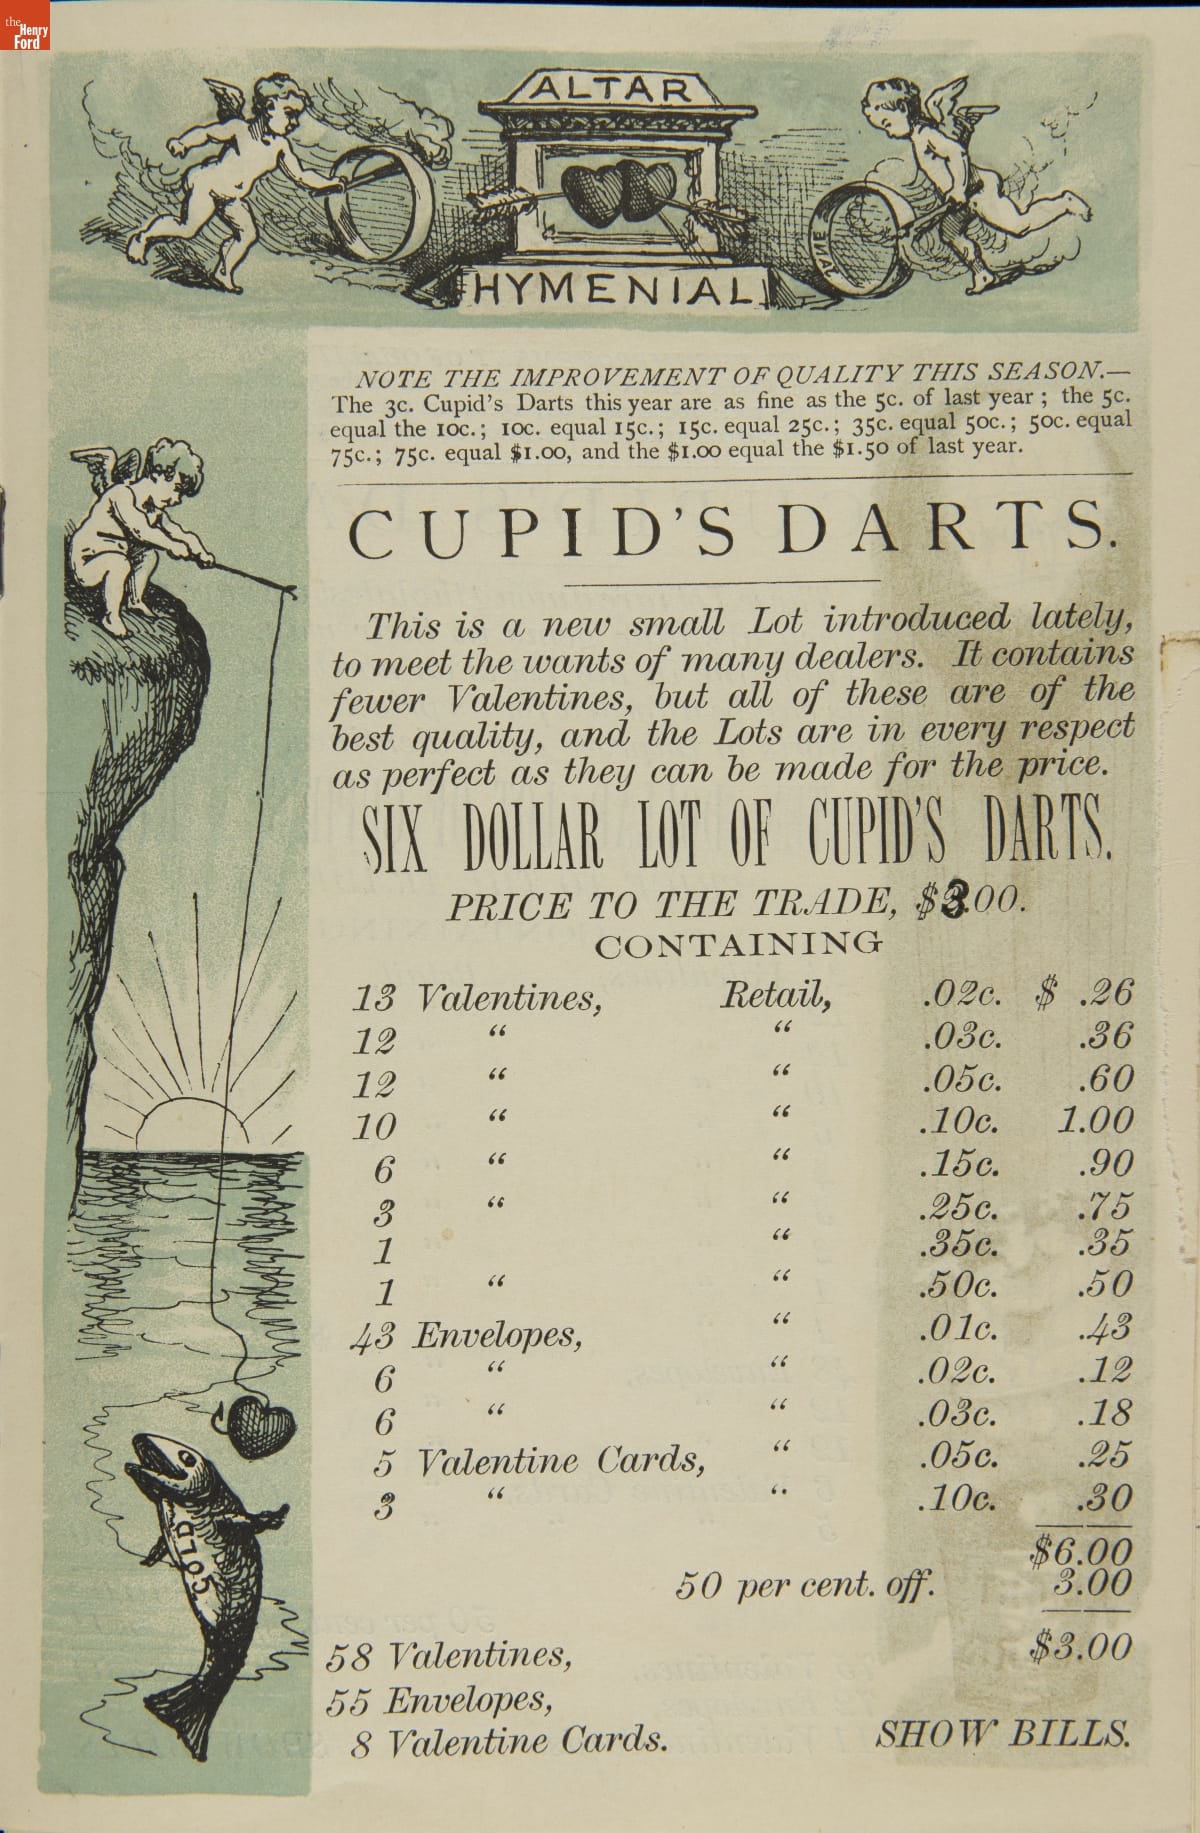 the
Henry
Ford
ALTAR
HYMENIAL
NOTE THE IMPROVEMENT OF QUALITY THIS SEASON.—
The 3c. Cupid's Darts this year are as fine as the 5c. of last year; the 5c.
equal the 10c.; 10c. equal 15c.; 15c. equal 25c.; 35c. equal 50c.; 50c. equal
75c.; 75c. equal $1.00, and the $1.00 equal the $1.50 of last year.
CUPID'S DARTS.
This is a new small Lot introduced lately,
to meet the wants of many dealers. It contains
fewer Valentines, but all of these are of the
best quality, and the Lots are in every respect
as perfect as they can be made for the price.
SIX DOLLAR LOT OF CUPID'S DARTS.
PRICE TO THE TRADE, $3.00.
CONTAINING
13 Valentines, Retail, .02c. $ .26
12 " " .03c. .36
12 " " .05c. .60
10 " " .10c. 1.00
6 " " .15c. .90
3 " " .25c. .75
1 " .35c. .35
1 " " .50c. .50
43 Envelopes, " .01c. .43
6 " " .02c. .12
6 " " .03c. .18
5 Valentine Cards, " .05c. .25
3 " " .10c. .30
$6.00
50 per cent. off. 3.00
$3.00
58 Valentines,
55 Envelopes,
8 Valentine Cards. SHOW BILLS.
SOLD